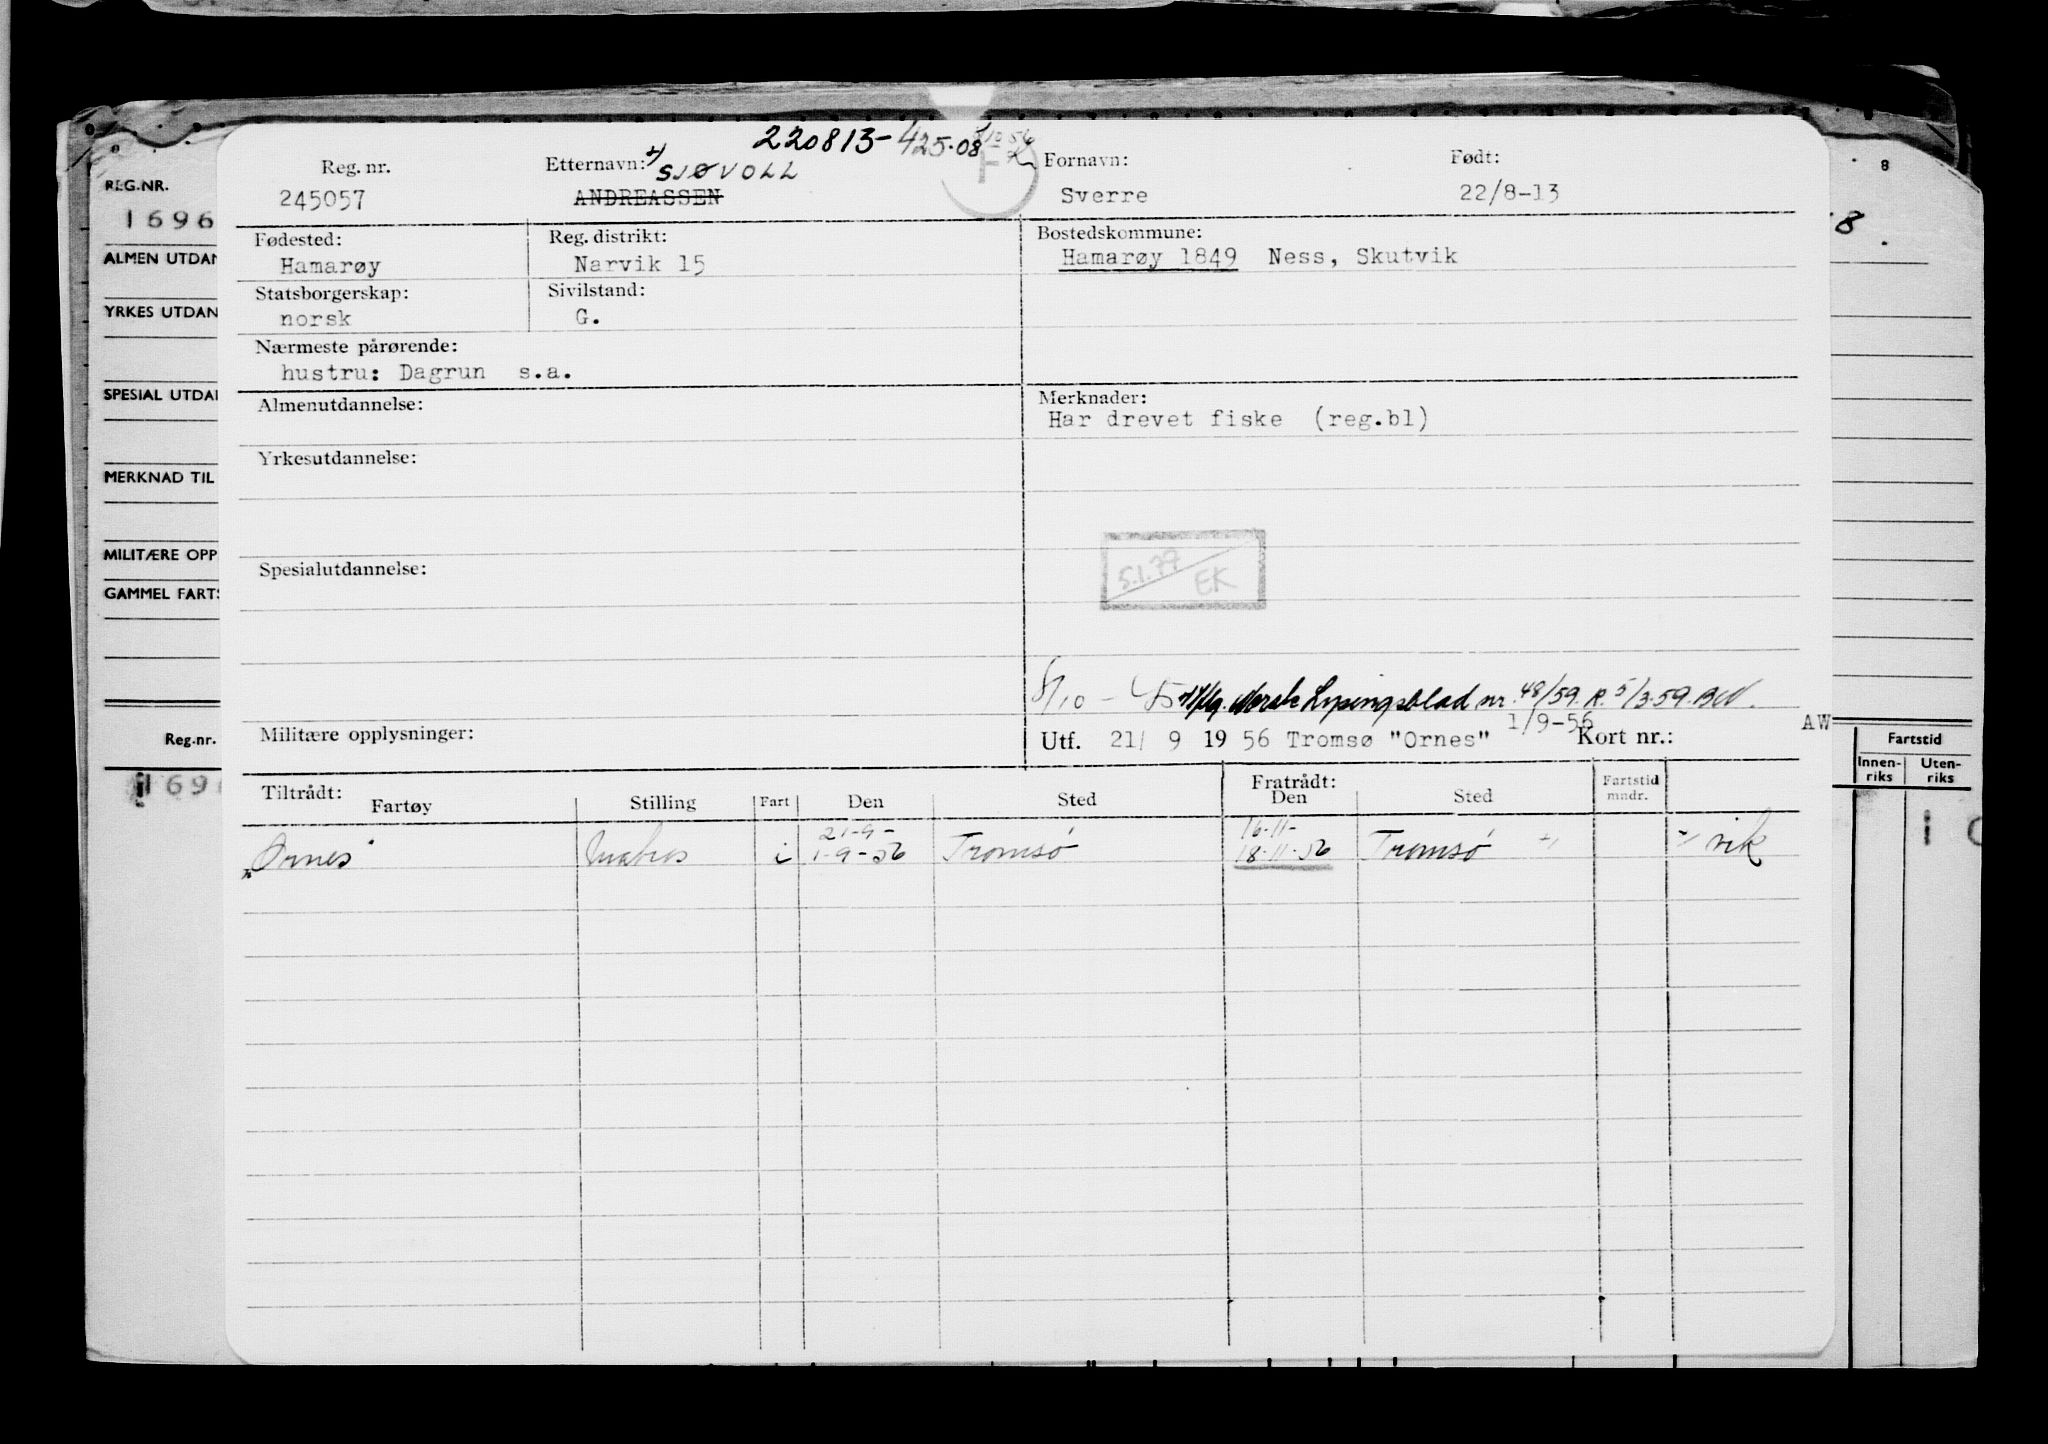 220813-425.08
Reg. nr. Etternavn: Fornavn: Født:
SJØVOLL
245057 ANDREASSEN Sverre 22/8-13
Fødested: Reg. distrikt: Bostedskommune:
Hamarøy Narvik 15 Hamarøy 1849 Ness, Skutvik
Statsborgerskap: Sivilstand:
norsk G.
Nærmeste pårørende:
hustru: Dagrun s.a.
Almenutdannelse: Merknader:
Har drevet fiske (reg.bl)
Yrkesutdannelse:
5.1.77
EK
Spesialutdannelse:
Norsk Lysingsblad nr. 48/59. R. 5/3-59.
1/9-56 AW
Militære opplysninger: Utf. 21/ 9 19 56 Tromsø "Ornes" Kort nr.:
Tiltrådt: Fratrådt:
Fartøy Stilling Fart Den Sted Den Sted Fartstid mndr.
21-9- 16-11-
Ornes i 1-9-56 Tromsø 18-11-56 Tromsø vik
REG.NR. 8
1696
8.
ALMEN UTDAN
YRKES UTDAN
SPESIAL UTDA
MERKNAD TIL
MILITÆRE OPP
GAMMEL FARTS
Reg.nr. Fartstid
Innen-riks Uten-riks
169
1